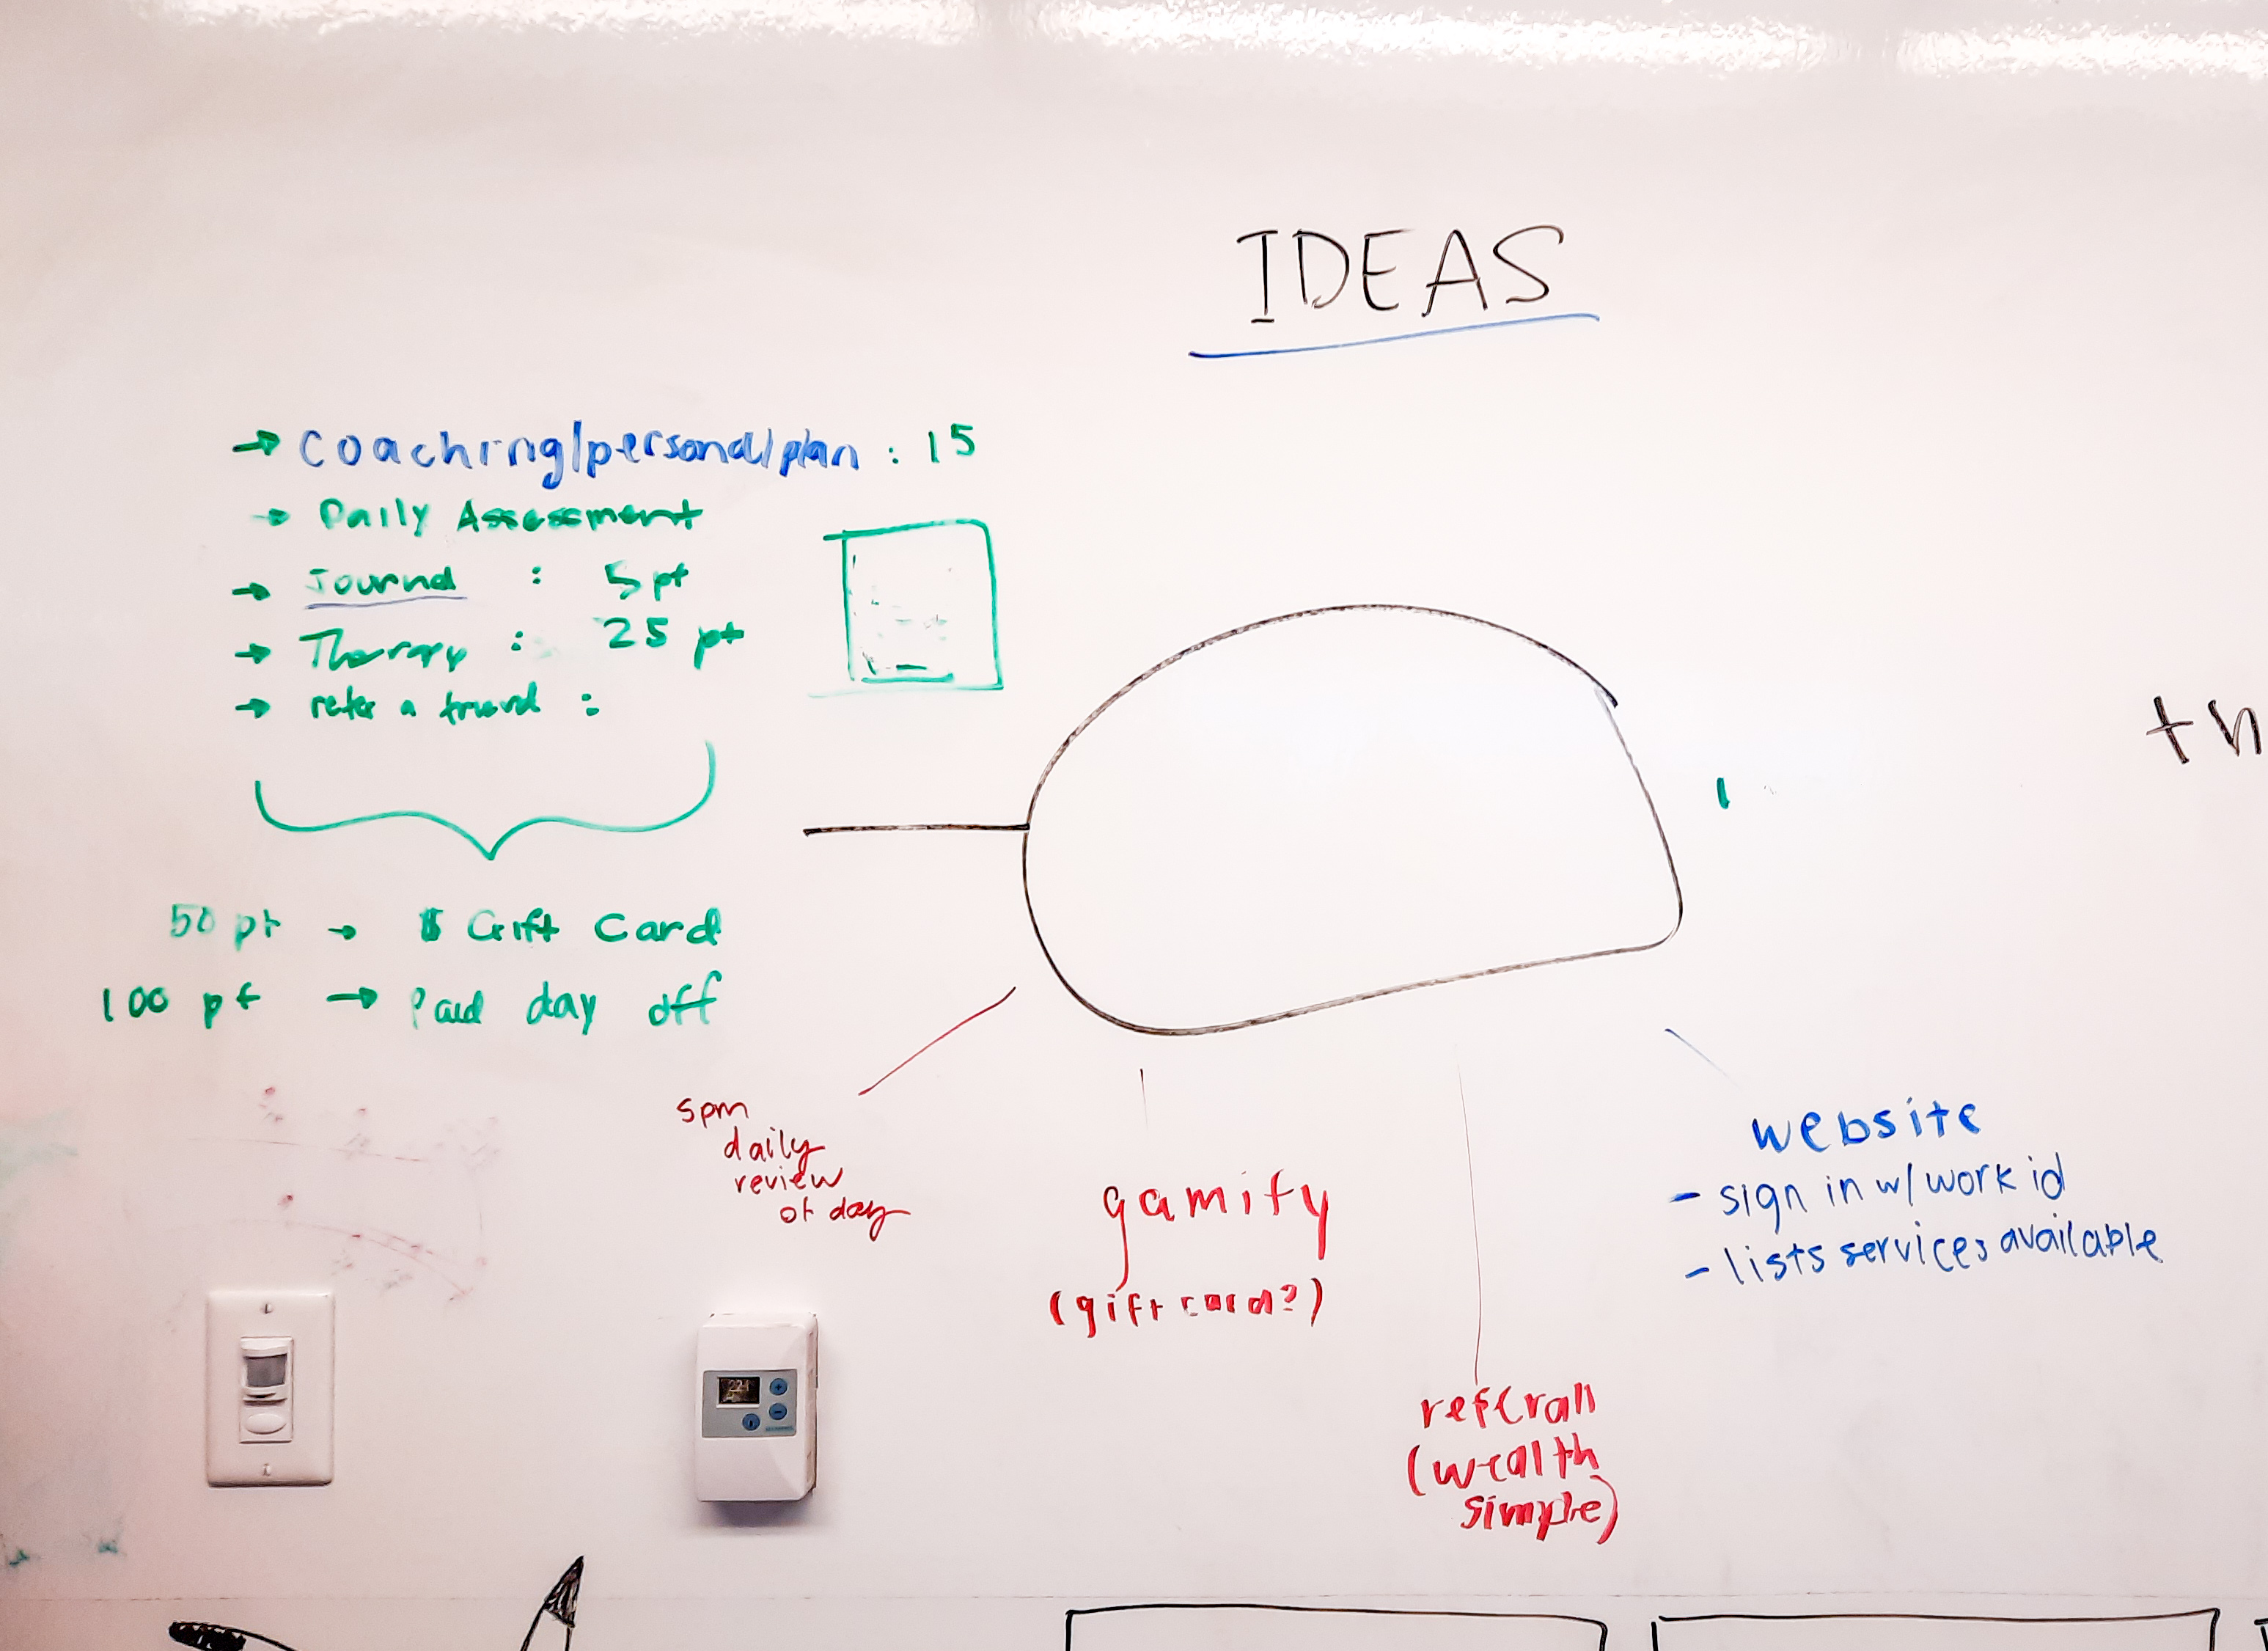 IDEAS
→ coaching/personal/plan : 15
→ Daily Assessment
→ Journal : 5 pt
→ Therapy : 25 pt
→ refer a friend :
50 pt → $ Gift Card
100 pt → Paid day off
th
5pm
daily
review
of day
gamify
(gift card?)
referall
(wealth
simple)
website
- sign in w/ work id
- lists services available